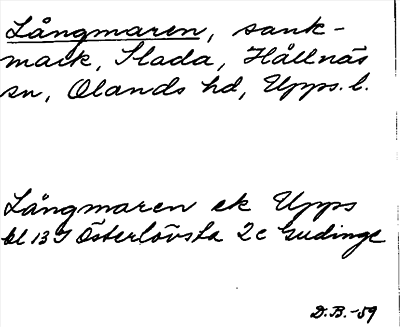 Långmaren, sank-
mark, Slada, Hållnäs
sn, Olands hd, Upps. l.
Långmaren ek Upps
bl 13 I Österlövsta 2c Gudinge
D.B.-59